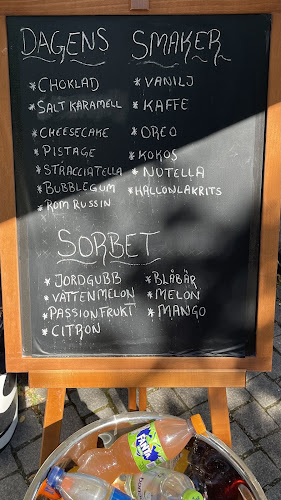 DAGENS SMAKER
* CHOKLAD
* SALT KARAMELL
* CHEESECAKE
* PISTAGE
* STRACCIATELLA
* BUBBLEGUM
* ROM RUSSIN
* VANILJ
* KAFFE
* OREO
* KOKOS
* NUTELLA
* HALLONLAKRITS
SORBET
* JORDGUBB
* VATTENMELON
* PASSIONFRUKT
* CITRON
* BLÅBÄR
* MELON
* MANGO
FANTA